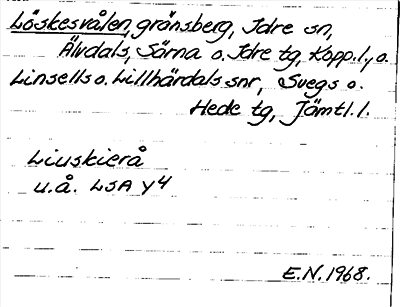 Löskesvålen, gränsberg, Idre sn,
Älvdals, Särna o. Idre tg, Kopp.l., o.
Linsells o. Lillhärdals snr, Svegs o.
Hede tg, Jämtl. l.
Liuskierå
u.å. LSA Y4
E.N. 1968.